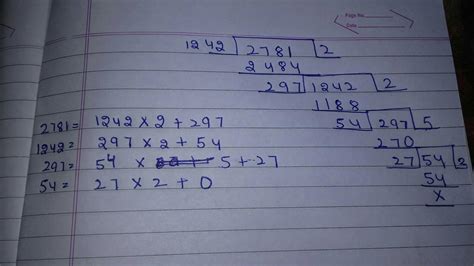 Page No.
Date
1242 2781 2
2484
297 1242 2
1188
54 297 5
270
27 54 2
54
x
2781= 1242 x 2 + 297
1242= 297 x 2 + 54
297= 54 x 5 + 27
54= 27 x 2 + 0